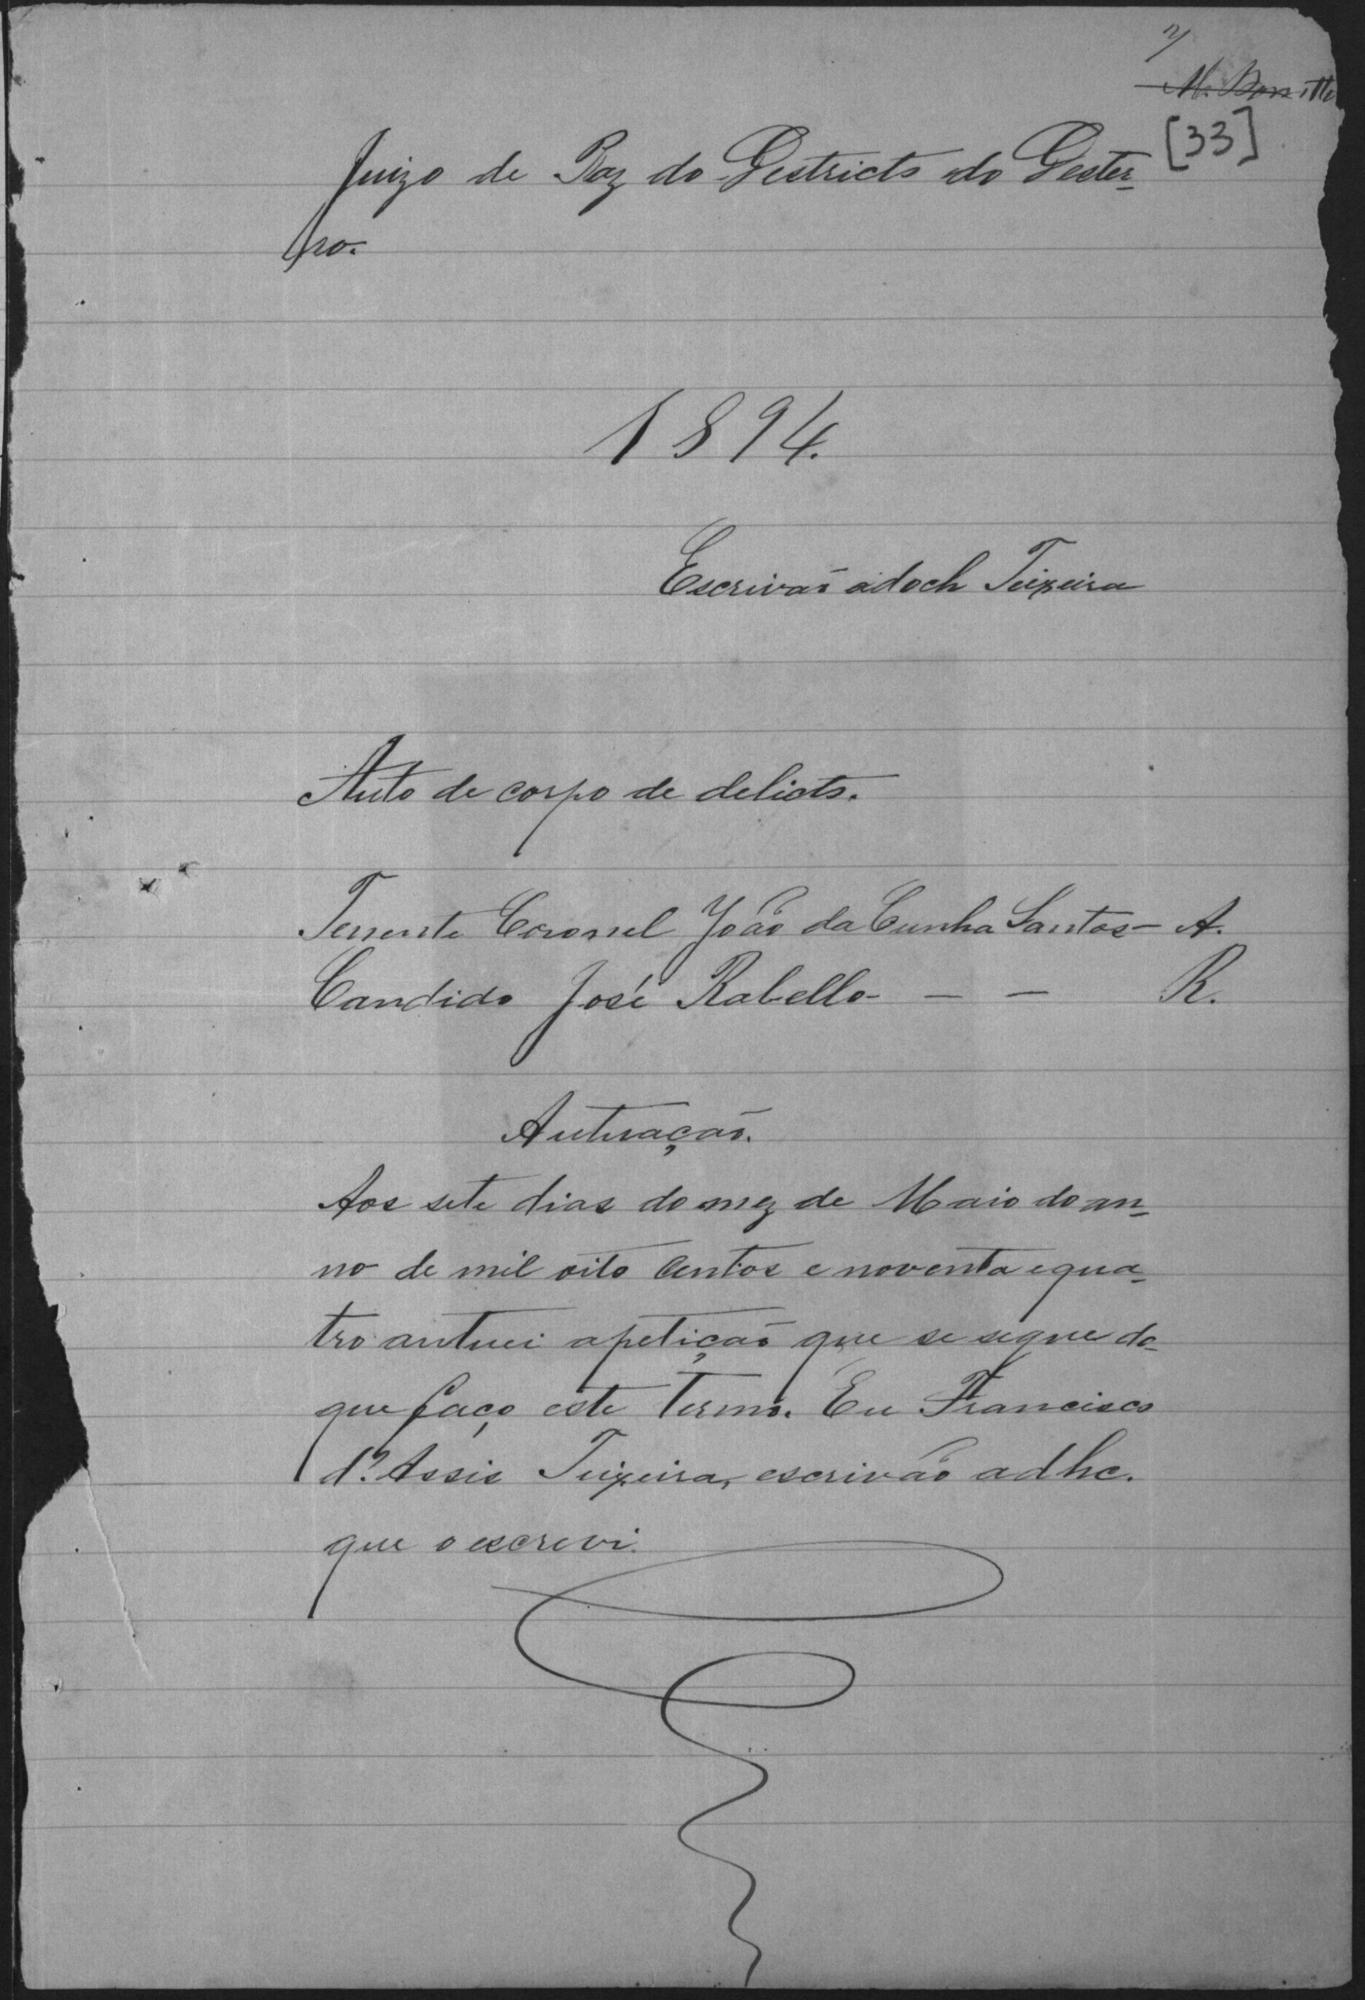 [33]
Juizo de Paz do Districto do Dester-
ro.
1894.
Escrivaõ adoch Teixeira
Auto de corpo de delicto.
Tenente Coronel João da Cunha Santos - A.
Candido José Rabello - - - R.
Autuaçaõ.
Aos sete dias do mez de Maio do an-
no de mil oito centos e noventa e qua-
tro autuei a petiçaõ que se segue do
que faço este termo. Eu Francisco
d'Assis Teixeira, escrivão adhc.
que o escrevi.